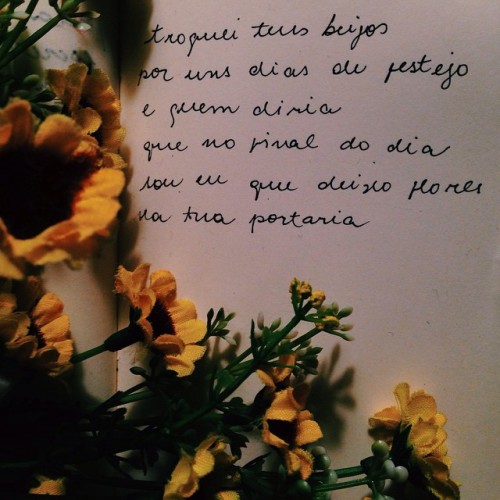 troquei teus beijos
por uns dias de festejo
e quem diria
que no final do dia
sou eu que deixo flores
na tua portaria